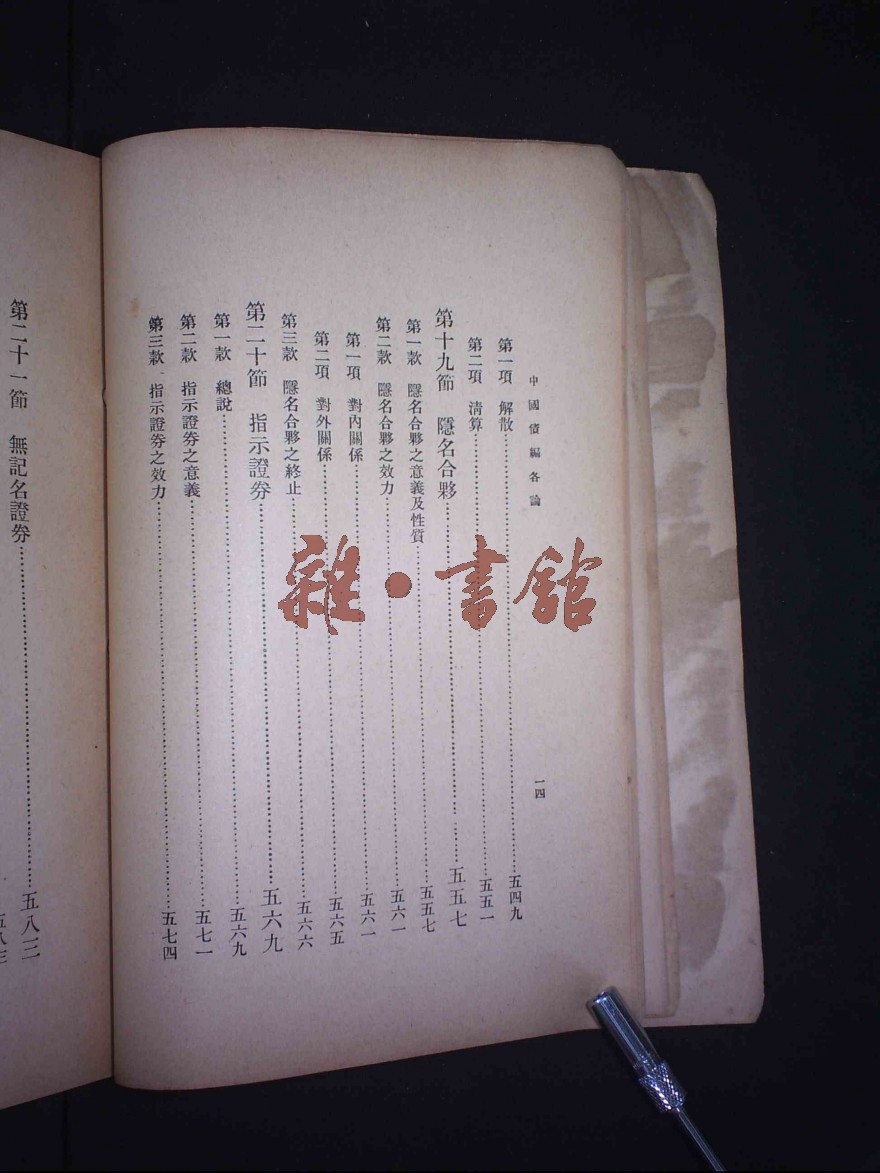 中國債編各論
一四
第一項　解散…………五四九
第二項　清算…………五五一
第十九節　隱名合夥…………五五七
第一款　隱名合夥之意義及性質…………五五七
第二款　隱名合夥之效力…………五六一
第一項　對內關係…………五六一
第二項　對外關係…………五六五
第三款　隱名合夥之終止…………五六六
第二十節　指示證券…………五六九
第一款　總說…………五六九
第二款　指示證券之意義…………五七一
第三款　指示證券之效力…………五七四
第二十一節　無記名證券…………五八三
雜·書館